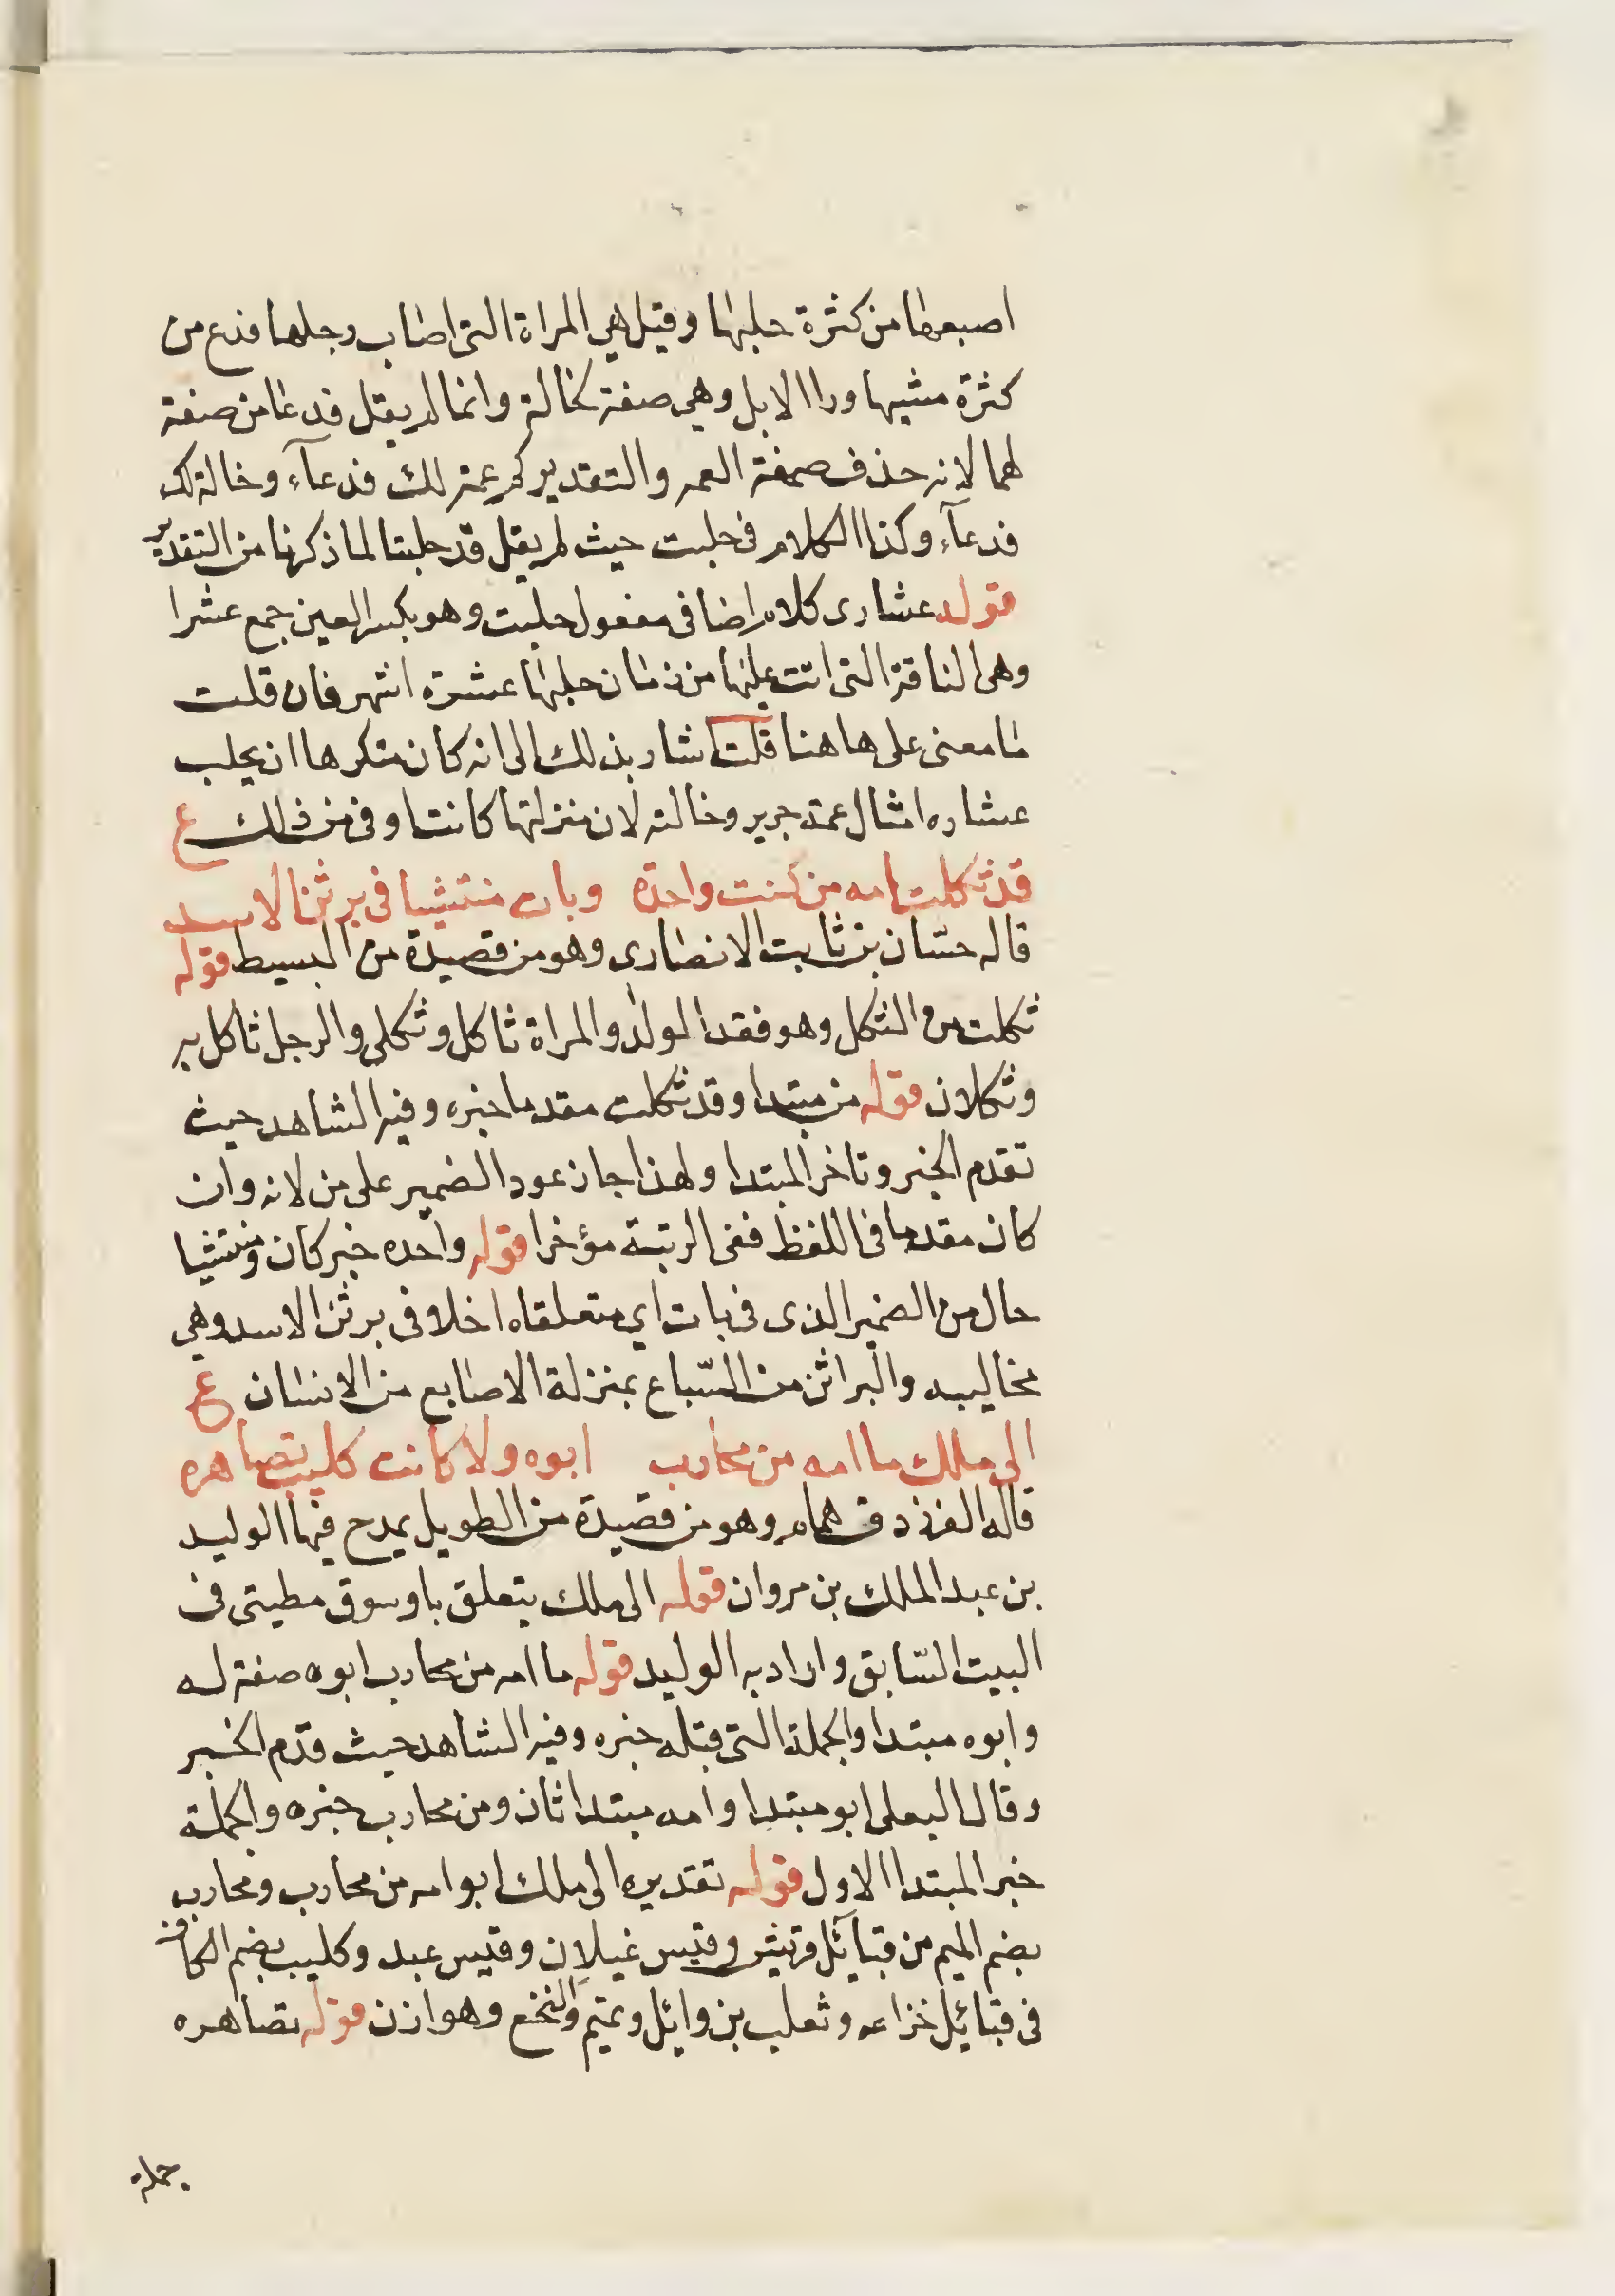 اصبعها من كثرة حلبها وقيل هي المراة التي اصاب رجلها فدع من
كثرة مشيها ورا الابل وهي صفة لخالة وانما لم يقل فدعا من صفة
لهما لانه حذف صفة العمه والتقدير كم عمة لك فدعآء وخالة لك
فدعآء وكذا الكلام في حلبت حيث لم يقل قد حلبتا لما ذكرنا من التقدير
قوله عشارى كلام اضافى مفعول حلبت وهو بكسر العين جمع عشرا
وهى الناقة التى اتت عليها من زمان حلبها عشرة اشهر فان قلت
ما معنى على ها هنا قلت اشار بذلك الى انه كان متكرها ان يحلب
عشاره امثال عمة جرير وخالته لان منزلتها كانت اوفى من ذلك ع
قد ثكلت امه من كنت واحده وبات منتشبا فى برثن الاسد
قاله حسّان بن ثابت الانصارى وهو من قصيدة من البسيط قوله
ثكلت من الثكل وهو فقد الولد والمراة ثاكل وثكلى والرجل ثاكل به
وثكلان قوله من مبتدا وقد ثكلت مقدما خبره وفيه الشاهد حيث
تقدم الخبر وتاخر المبتدا ولهذا جاز عود الضمير على من لانه وان
كان مقدما فى اللفظ ففى الرتبة مؤخرا قوله واحده خبر كان ومنتشبا
حال من الضمير الذى فى بات اي متعلقا داخلا فى برثن الاسد وهي
مخاليبه والبراثن من السّباع بمنزلة الاصابع من الانسان ع
الى ملك ما امه من محارب ابوه ولا كانت كليب تصاهره
قاله الفرزدق همام وهو من قصيدة من الطويل يمدح فيها الوليد
بن عبد الملك بن مروان قوله الى ملك يتعلق باوسوق مطيتى فى
البيت السّابق واراد به الوليد قوله ما امه من محارب ابوه صفة له
وابوه مبتدا والجملة التى قبله خبره وفيه الشاهد حيث قدّم الخبر
وقال البعلى ابو مبتدا وامه مبتدا ثان ومن محارب خبره والجملة
خبر المبتدا الاول قوله تقديره الى ملك ابو امه من محارب ومحارب
بضم الميم من قبآئل قريش وقيس غيلان وقيس عبد وكليب بضم الكاف
فى قبائل خزاعه وثعلب بن وائل وتميم والنخع وهوازن قوله تصاهره
جملة